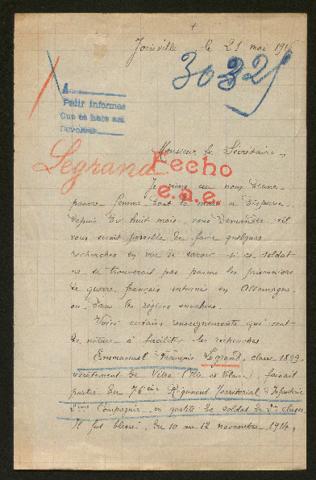 Joinville le 21 mai 191
30327
A
Pedir informes
Que se hace asi
Devolver
Monsieur le Secrétaire,
Legrand
Fecho
e.a.e.
Je viens au nom d'une
pauvre femme dont le mari a disparu
depuis dix huit mois, vous demander s'il
vous serait possible de faire quelques
recherches en vue de savoir si ce soldat
ne se trouverait pas parmi les prisonniers
de guerre français internés en Allemagne,
ou dans les régions envahies.
Voici certains renseignements qui sont
de nature à faciliter les recherches
Emmanuel François Legrand, classe 1899
recrutement de Vitré (Ille et Vilaine) faisait
partie du 76ème Régiment Territorial d'Infanterie
Compagnie, en qualité de soldat de 2e classe.
Il fut blessé, du 10 au 12 novembre 1914,